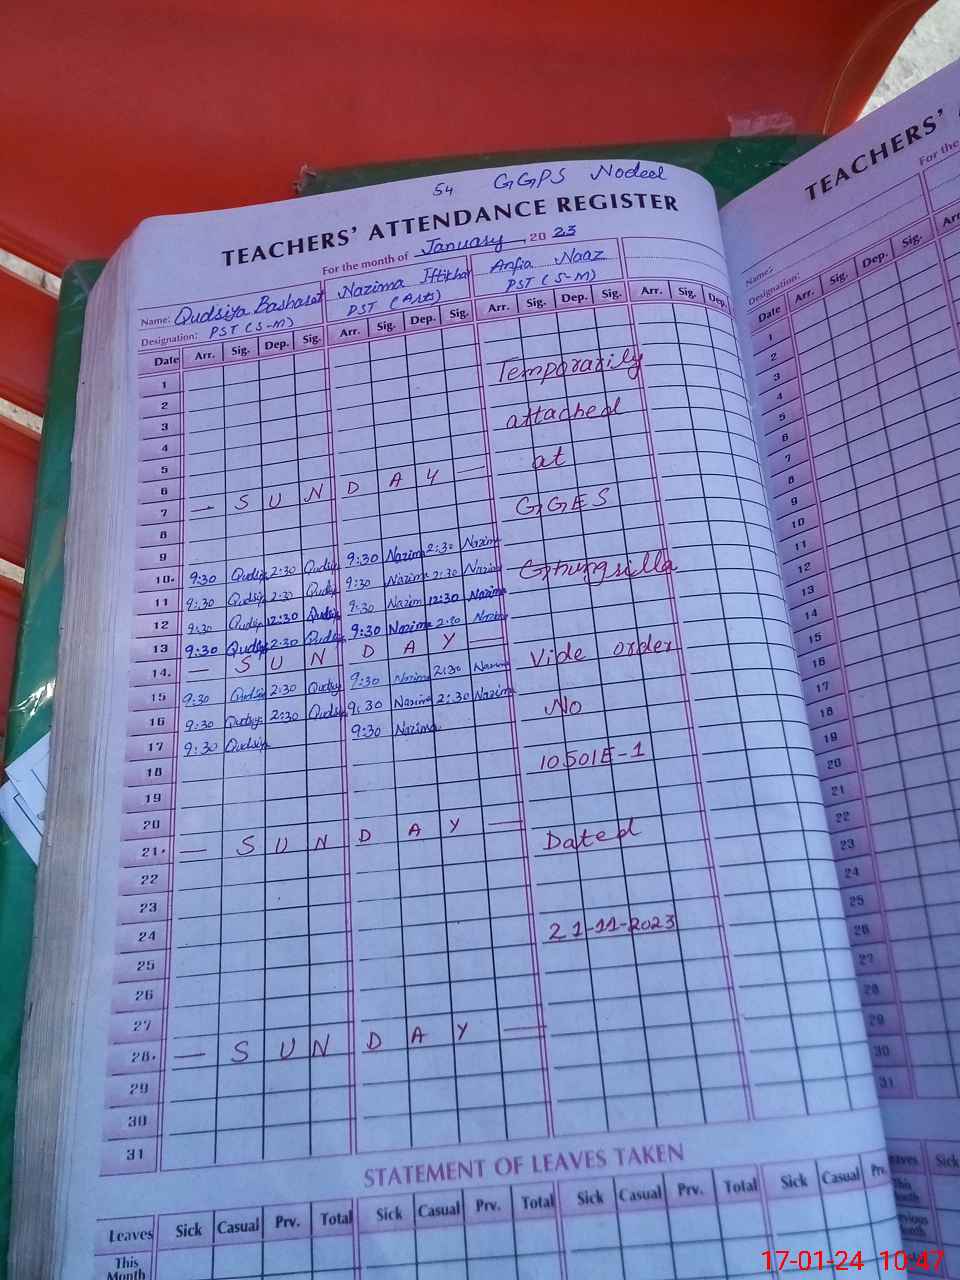 54 GGPS Nodeel
TEACHERS' ATTENDANCE REGISTER
For the month of January 2023
Name: Qudsiya Basharat Nazima Iftikhar Anfia Naaz
Designation: PST (S-M) PST (Arts) PST (S-M)
Date Arr. Sig. Dep. Sig. Arr. Sig. Dep. Sig. Arr. Sig. Dep. Sig. Arr. Sig. Dep.
1 Temporarily
2
3 attached
4
5 at
6
7 — SUNDAY — GGES
8
9
10. 9:30 Qudsiya 2:30 Qudsiya 9:30 Nazima 2:30 Nazima Ghungrilla
11 9:30 Qudsiya 2:30 Qudsiya 9:30 Nazima 2:30 Nazima
12 9:30 Qudsiya 12:30 Qudsiya 9:30 Nazima 12:30 Nazima
13 9:30 Qudsiya 2:30 Qudsiya 9:30 Nazima 2:30 Nazima Vide order
14. SUNDAY
15 9:30 Qudsiya 2:30 Qudsiya 9:30 Nazima 2:30 Nazima No
16 9:30 Qudsiya 2:30 Qudsiya 9:30 Nazima 2:30 Nazima
17 9:30 Qudsiya 9:30 Nazima 10501E-1
18
19
20 Dated
21. — SUNDAY —
22
23
24 21-11-2023
25
26
27
28. — SUNDAY —
29
30
31
STATEMENT OF LEAVES TAKEN
Leaves Sick Casual Prv. Total Sick Casual Prv. Total Sick Casual Prv. Total Sick Casual Prv.
This
Month
TEACHERS'
For the
Name:
Designation:
Date Arr. Sig. Dep. Sig. Arr.
1
2
3
4
5
6
7
8
9
10
11
12
13
14
15
16
17
18
19
20
21
22
23
24
25
26
27
28
29
30
31
Sick
17-01-24 10:47